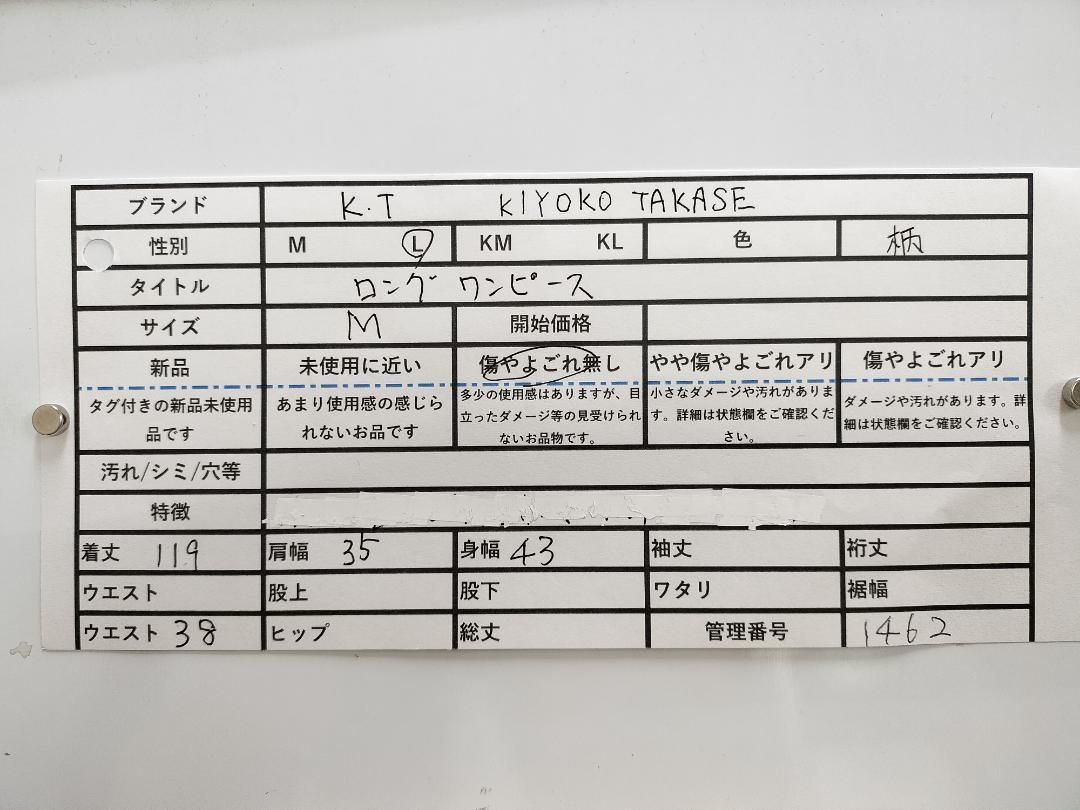 ブランド K.T KIYOKO TAKASE
性別 M L KM KL 色 柄
タイトル ロング ワンピース
サイズ M 開始価格
新品 未使用に近い 傷やよごれ無し やや傷やよごれアリ 傷やよごれアリ
タグ付きの新品未使用
品です
あまり使用感の感じら
れないお品です
多少の使用感はありますが、目
立ったダメージ等の見受けられ
ないお品物です。
小さなダメージや汚れがありま
す。詳細は状態欄をご確認くだ
さい。
ダメージや汚れがあります。詳
細は状態欄をご確認ください。
汚れ/シミ/穴等
特徴
着丈 119 肩幅 35 身幅 43 袖丈 裄丈
ウエスト 股上 股下 ワタリ 裾幅
ウエスト 38 ヒップ 総丈 管理番号 1462